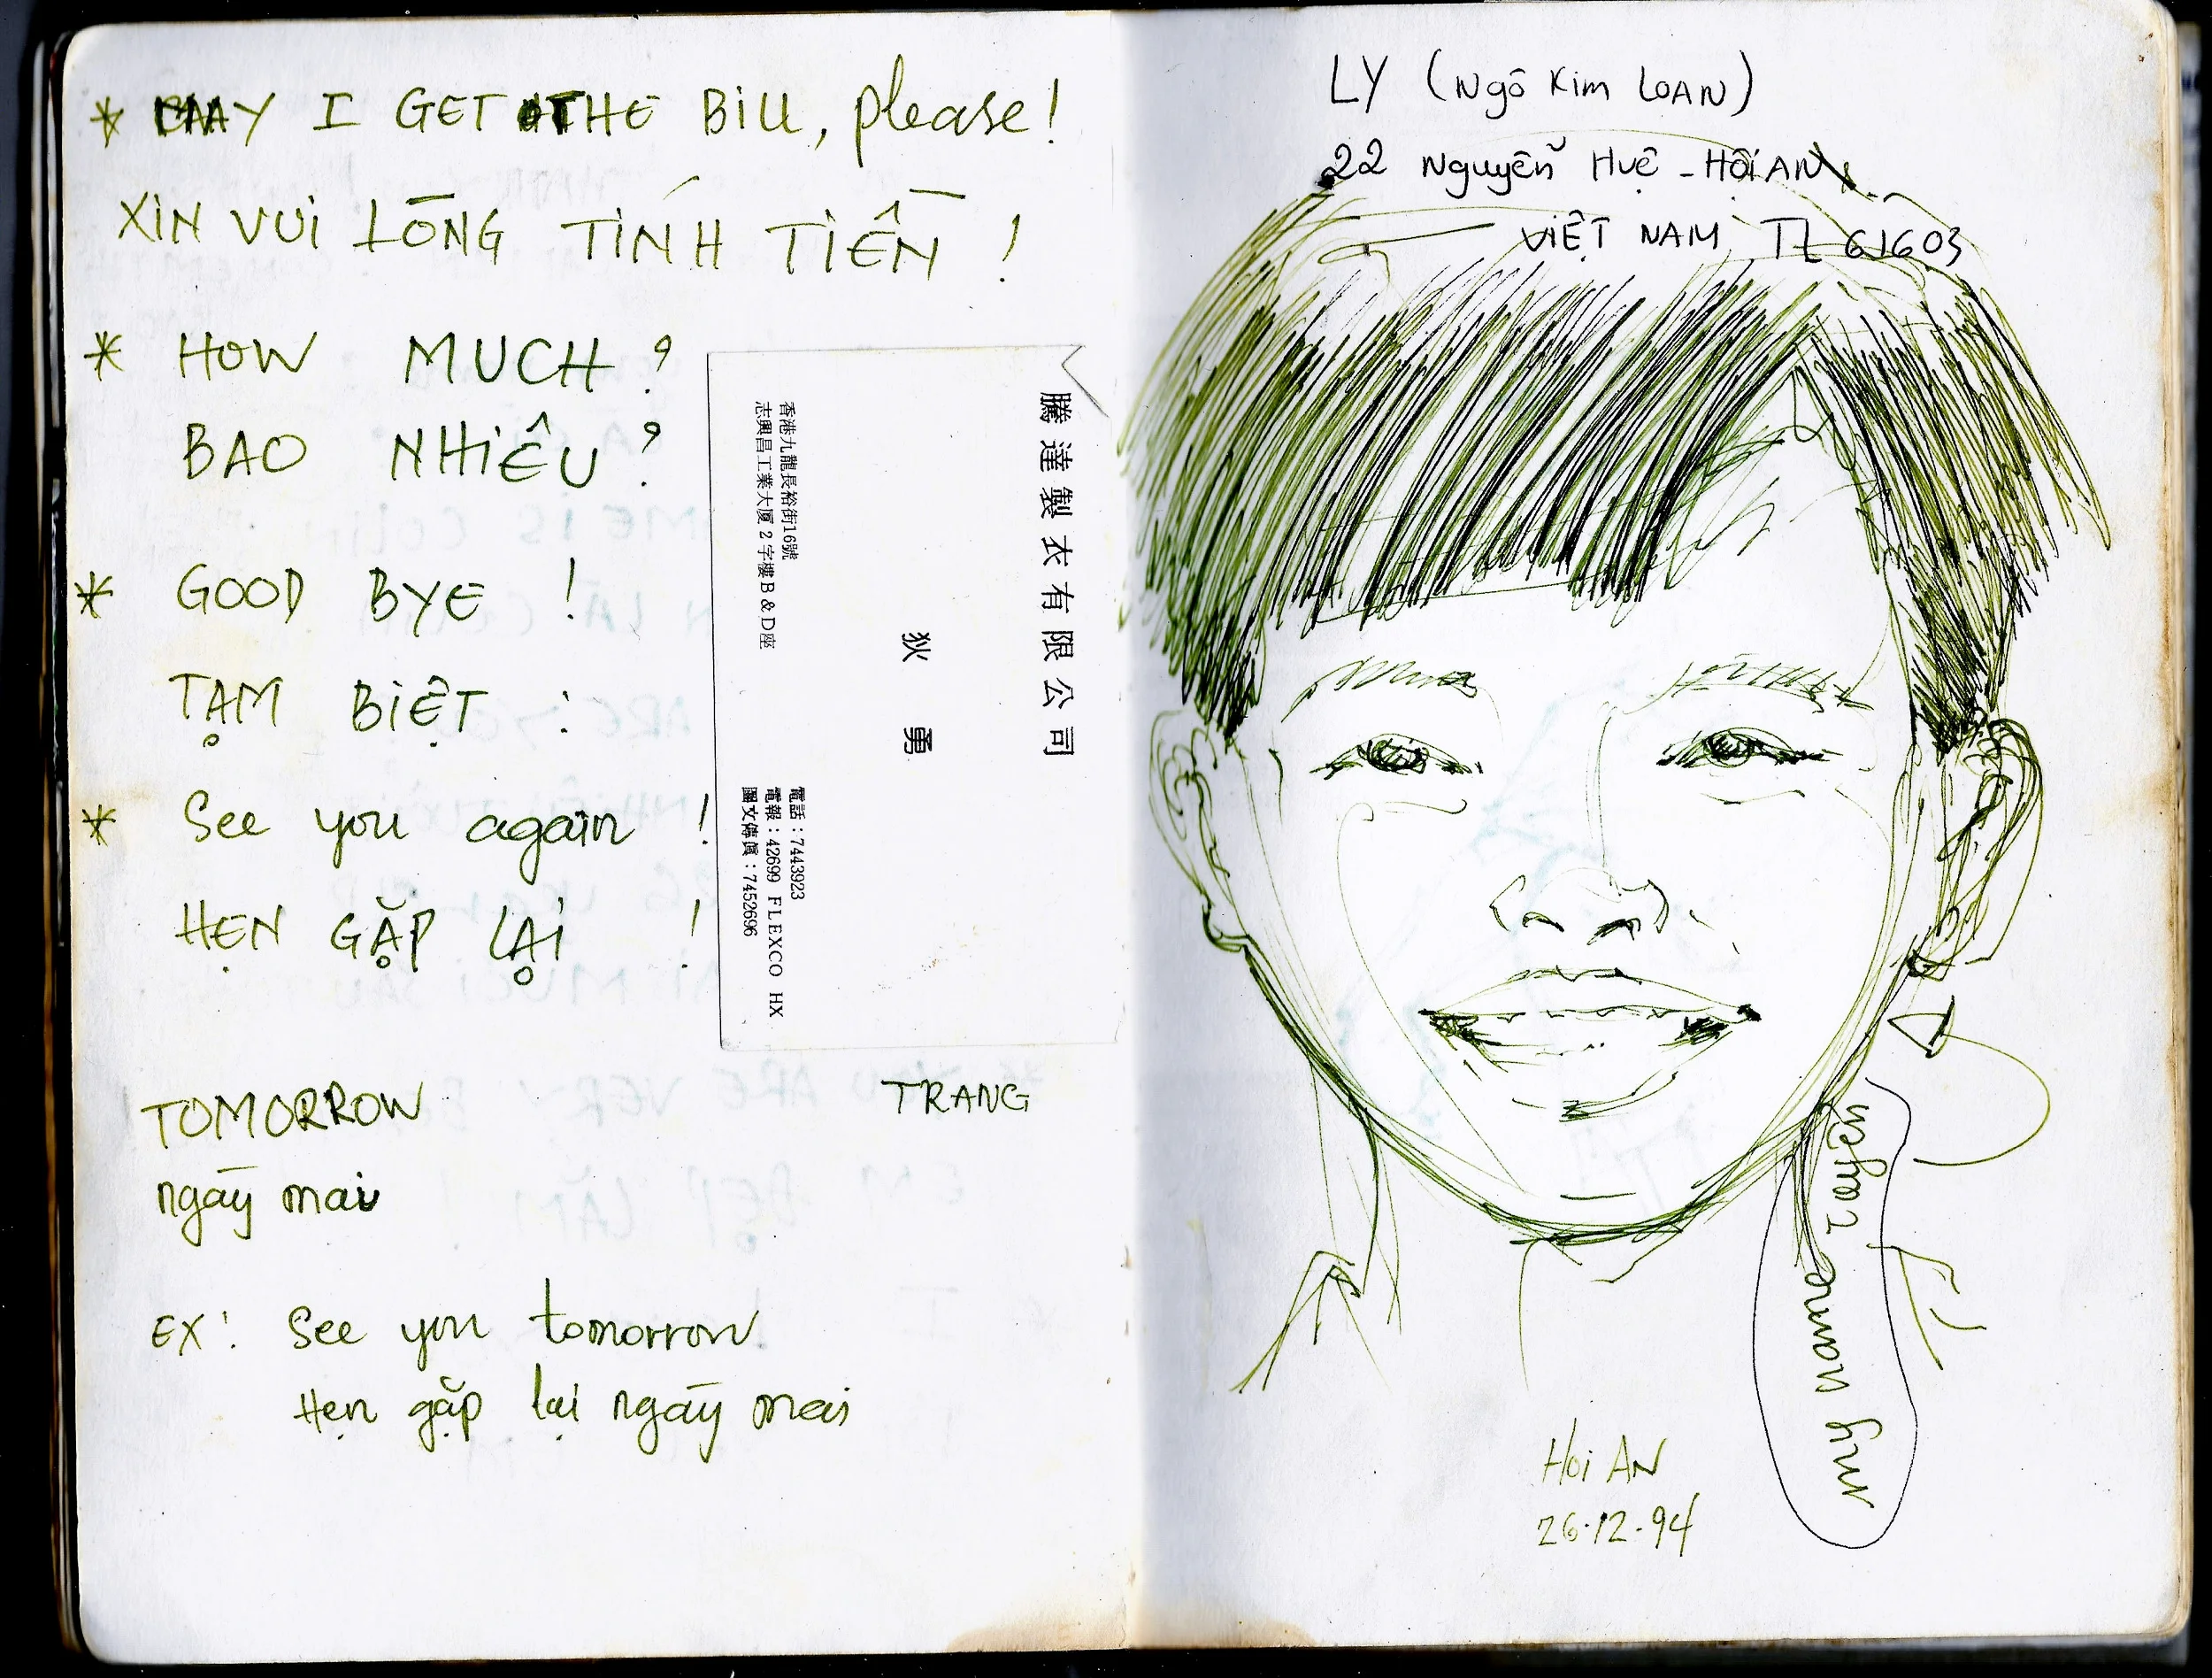 * MAY I GET THE BILL, please!
XIN VUI LÒNG TÍNH TIỀN !
* HOW MUCH ?
BAO NHIÊU ?
* GOOD BYE !
TẠM BIỆT :
* See you again !
HẸN GẶP LẠI !
TOMORROW
ngày mai
TRANG
EX: See you tomorrow
Hẹn gặp lại ngày mai
騰達製衣有限公司
狄勇
香港九龍長裕街16號
志興昌工業大厦2字樓B&D座
電話：7443923
電報：42699 FLEXCO HX
圖文傳眞：7452696
LY (Ngô Kim LOAN)
22 Nguyễn Huệ - Hội AN
VIỆT NAM TL 61603
Hoi AN
26.12.94